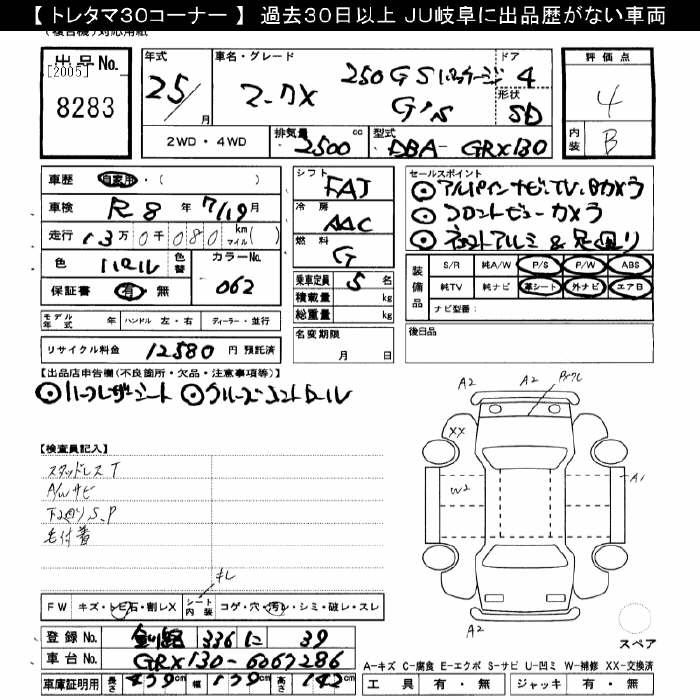 【 トレタマ30コーナー 】 過去30日以上 JU岐阜に出品歴がない車両
出品No.
[2005]
8283
年式 車名・グレード ドア 評価点
25/ 月 マークX 250GS パッケージ 4 4
G's 形状 SD
2WD・4WD 排気量 2500 cc 型式 DBA-GRX130 内装 B
車歴 自家用・( )
車検 R8 年 7/19 月
走行 13万0千080 km マイル( )
色 パール 色替 カラーNo. 062
保証書 有・無
シフト FAT
冷房 AAC
燃料 G
乗車定員 5 名
積載量 kg
総重量 kg
名変期限
月 日
セールスポイント
アルパインナビ、TV、Bカメラ
フロントビューカメラ
社外アルミ & 足回り
装備品 S/R 純A/W P/S P/W ABS
純TV 純ナビ 革シート 外ナビ エアB
ナビ型番:
後日品
モデル年式 年 ハンドル 左・右 ディーラー・並行
リサイクル料金 12580 円 預託済
【出品店申告欄(不良箇所・欠品・注意事項等)】
ハーフレザーシート クルーズコントロール
【検査員記入】
スタッドレスT
A/Wサビ
下廻りS、P
毛付着
キレ
FW キズ・トビ石・割レX シート内装 コゲ・穴・汚レ・シミ・破レ・スレ
A2 A2
XX
W2 A1
A2
スペア
登録No. 釧路 336 に 39
車台No. GRX130-6067286
A-キズ C-腐食 E-エクボ S-サビ U-凹ミ W-補修 XX-交換済
車庫証明用 長さ 439cm 幅 179cm 高さ 142cm
工具 有・無 ジャッキ 有・無